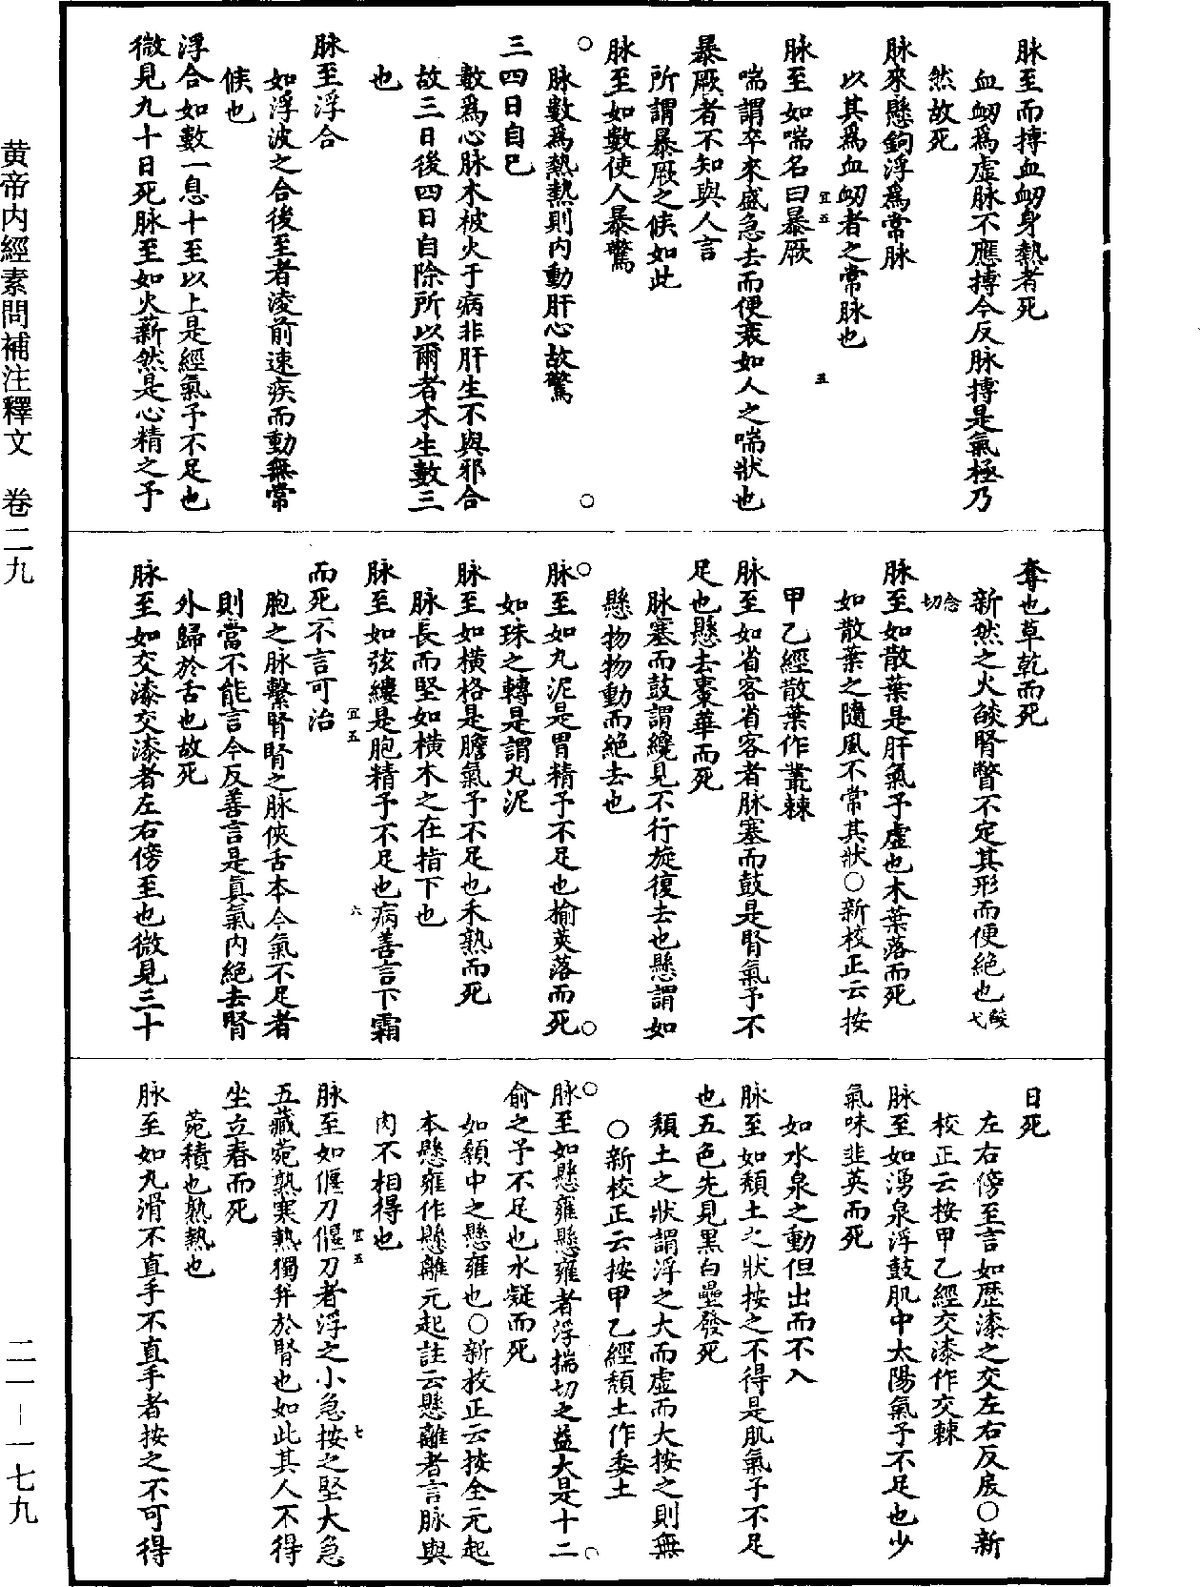 脉至而搏血衂身熱者死
血衂爲虛脉不應搏今反脉搏是氣極乃
然故死
脉來懸鉤浮爲常脉
以其爲血衂者之常脉也
脉至如喘名曰暴厥
喘謂卒來盛急去而便衰如人之喘狀也
暴厥者不知與人言
所謂暴厥之候如此
脉至如數使人暴驚
脉數爲熱熱則内動肝心故驚
三四日自已
數爲心脉木被火于病非肝生不與邪合
故三日後四日自除所以爾者木生數三
也
脉至浮合
如浮波之合後至者淩前速疾而動無常
候也
浮合如數一息十至以上是經氣予不足也
微見九十日死脉至如火薪然是心精之予
奪也草乾而死
新然之火燄瞥不定其形而便絶也燄弋
念切
脉至如散葉是肝氣予虛也木葉落而死
如散葉之隨風不常其狀〇新校正云按
甲乙經散葉作叢棘
脉至如省客省客者脉塞而鼓是腎氣予不
足也懸去棗華而死
脉塞而鼓謂纔見不行旋復去也懸謂如
懸物物動而絶去也
脉至如丸泥是胃精予不足也榆莢落而死
如珠之轉是謂丸泥
脉至如橫格是膽氣予不足也禾熟而死
脉長而堅如橫木之在指下也
脉至如弦縷是胞精予不足也病善言下霜
而死不言可治
胞之脉繫腎腎之脉俠舌本今氣不足者
則當不能言今反善言是眞氣内絶去腎
外歸於舌也故死
脉至如交漆交漆者左右傍至也微見三十
日死
左右傍至言如歷漆之交左右反戾〇新
校正云按甲乙經交漆作交棘
脉至如湧泉浮鼓肌中太陽氣予不足也少
氣味韭英而死
如水泉之動但出而不入
脉至如頹土之狀按之不得是肌氣予不足
也五色先見黑白壘發死
頹土之狀謂浮之大而虛而大按之則無
〇新校正云按甲乙經頹土作委土
脉至如懸雍懸雍者浮揣切之益大是十二
俞之予不足也水凝而死
如顙中之懸雍也〇新校正云按全元起
本懸雍作懸離元起註云懸離者言脉與
肉不相得也
脉至如偃刀偃刀者浮之小急按之堅大急
五藏菀熟寒熱獨并於腎也如此其人不得
坐立春而死
菀積也熟熱也
脉至如丸滑不直手不直手者按之不可得
黄帝内經素問補注釋文　卷二九
二一－一七九